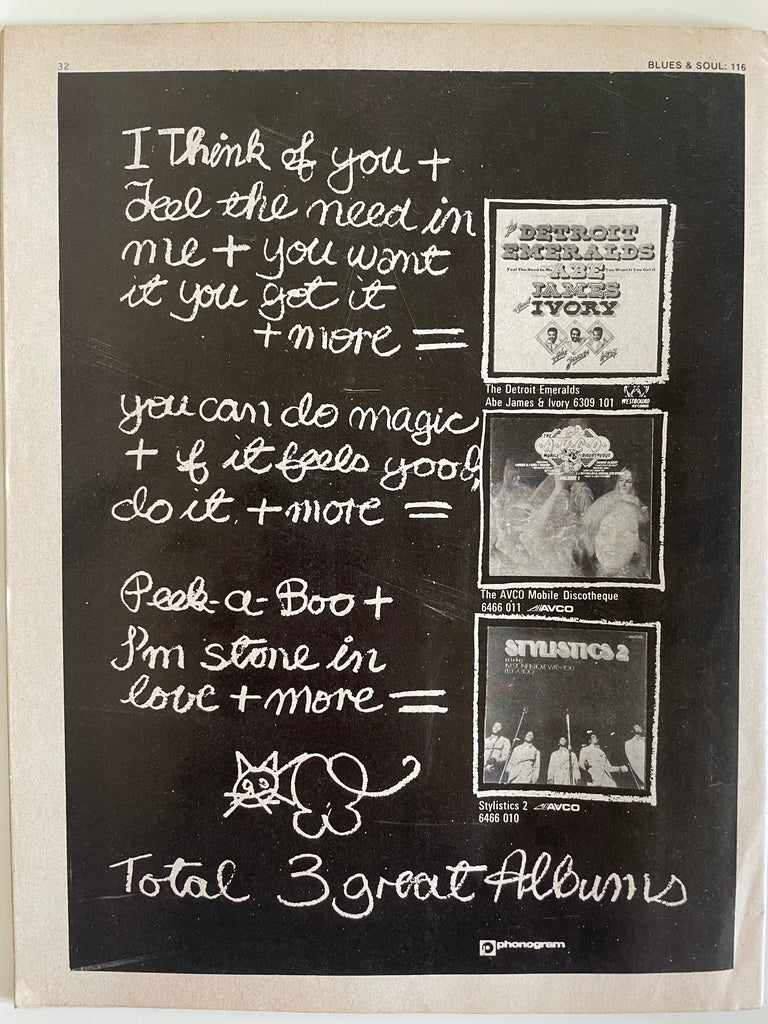 32
BLUES & SOUL: 116
I Think of you +
Feel the need in
me + you want
it you got it
+ more =
The
DETROIT
EMERALDS
Feel The Need In Me
You Want It You Got It
ABE
JAMES
IVORY
Abe James Ivory
The Detroit Emeralds
Abe James & Ivory 6309 101
WESTBOUND
RECORDS
you can do magic
+ if it feels good,
do it. + more =
VOLUME 1
The AVCO Mobile Discotheque
6466 011 AVCO
Peek-a-Boo +
I'm stone in
love + more =
AVCO
STYLISTICS 2
including
I'M STONE IN LOVE WITH YOU
PEEK-A-BOO
Stylistics 2 AVCO
6466 010
Total 3 great Albums
p phonogram